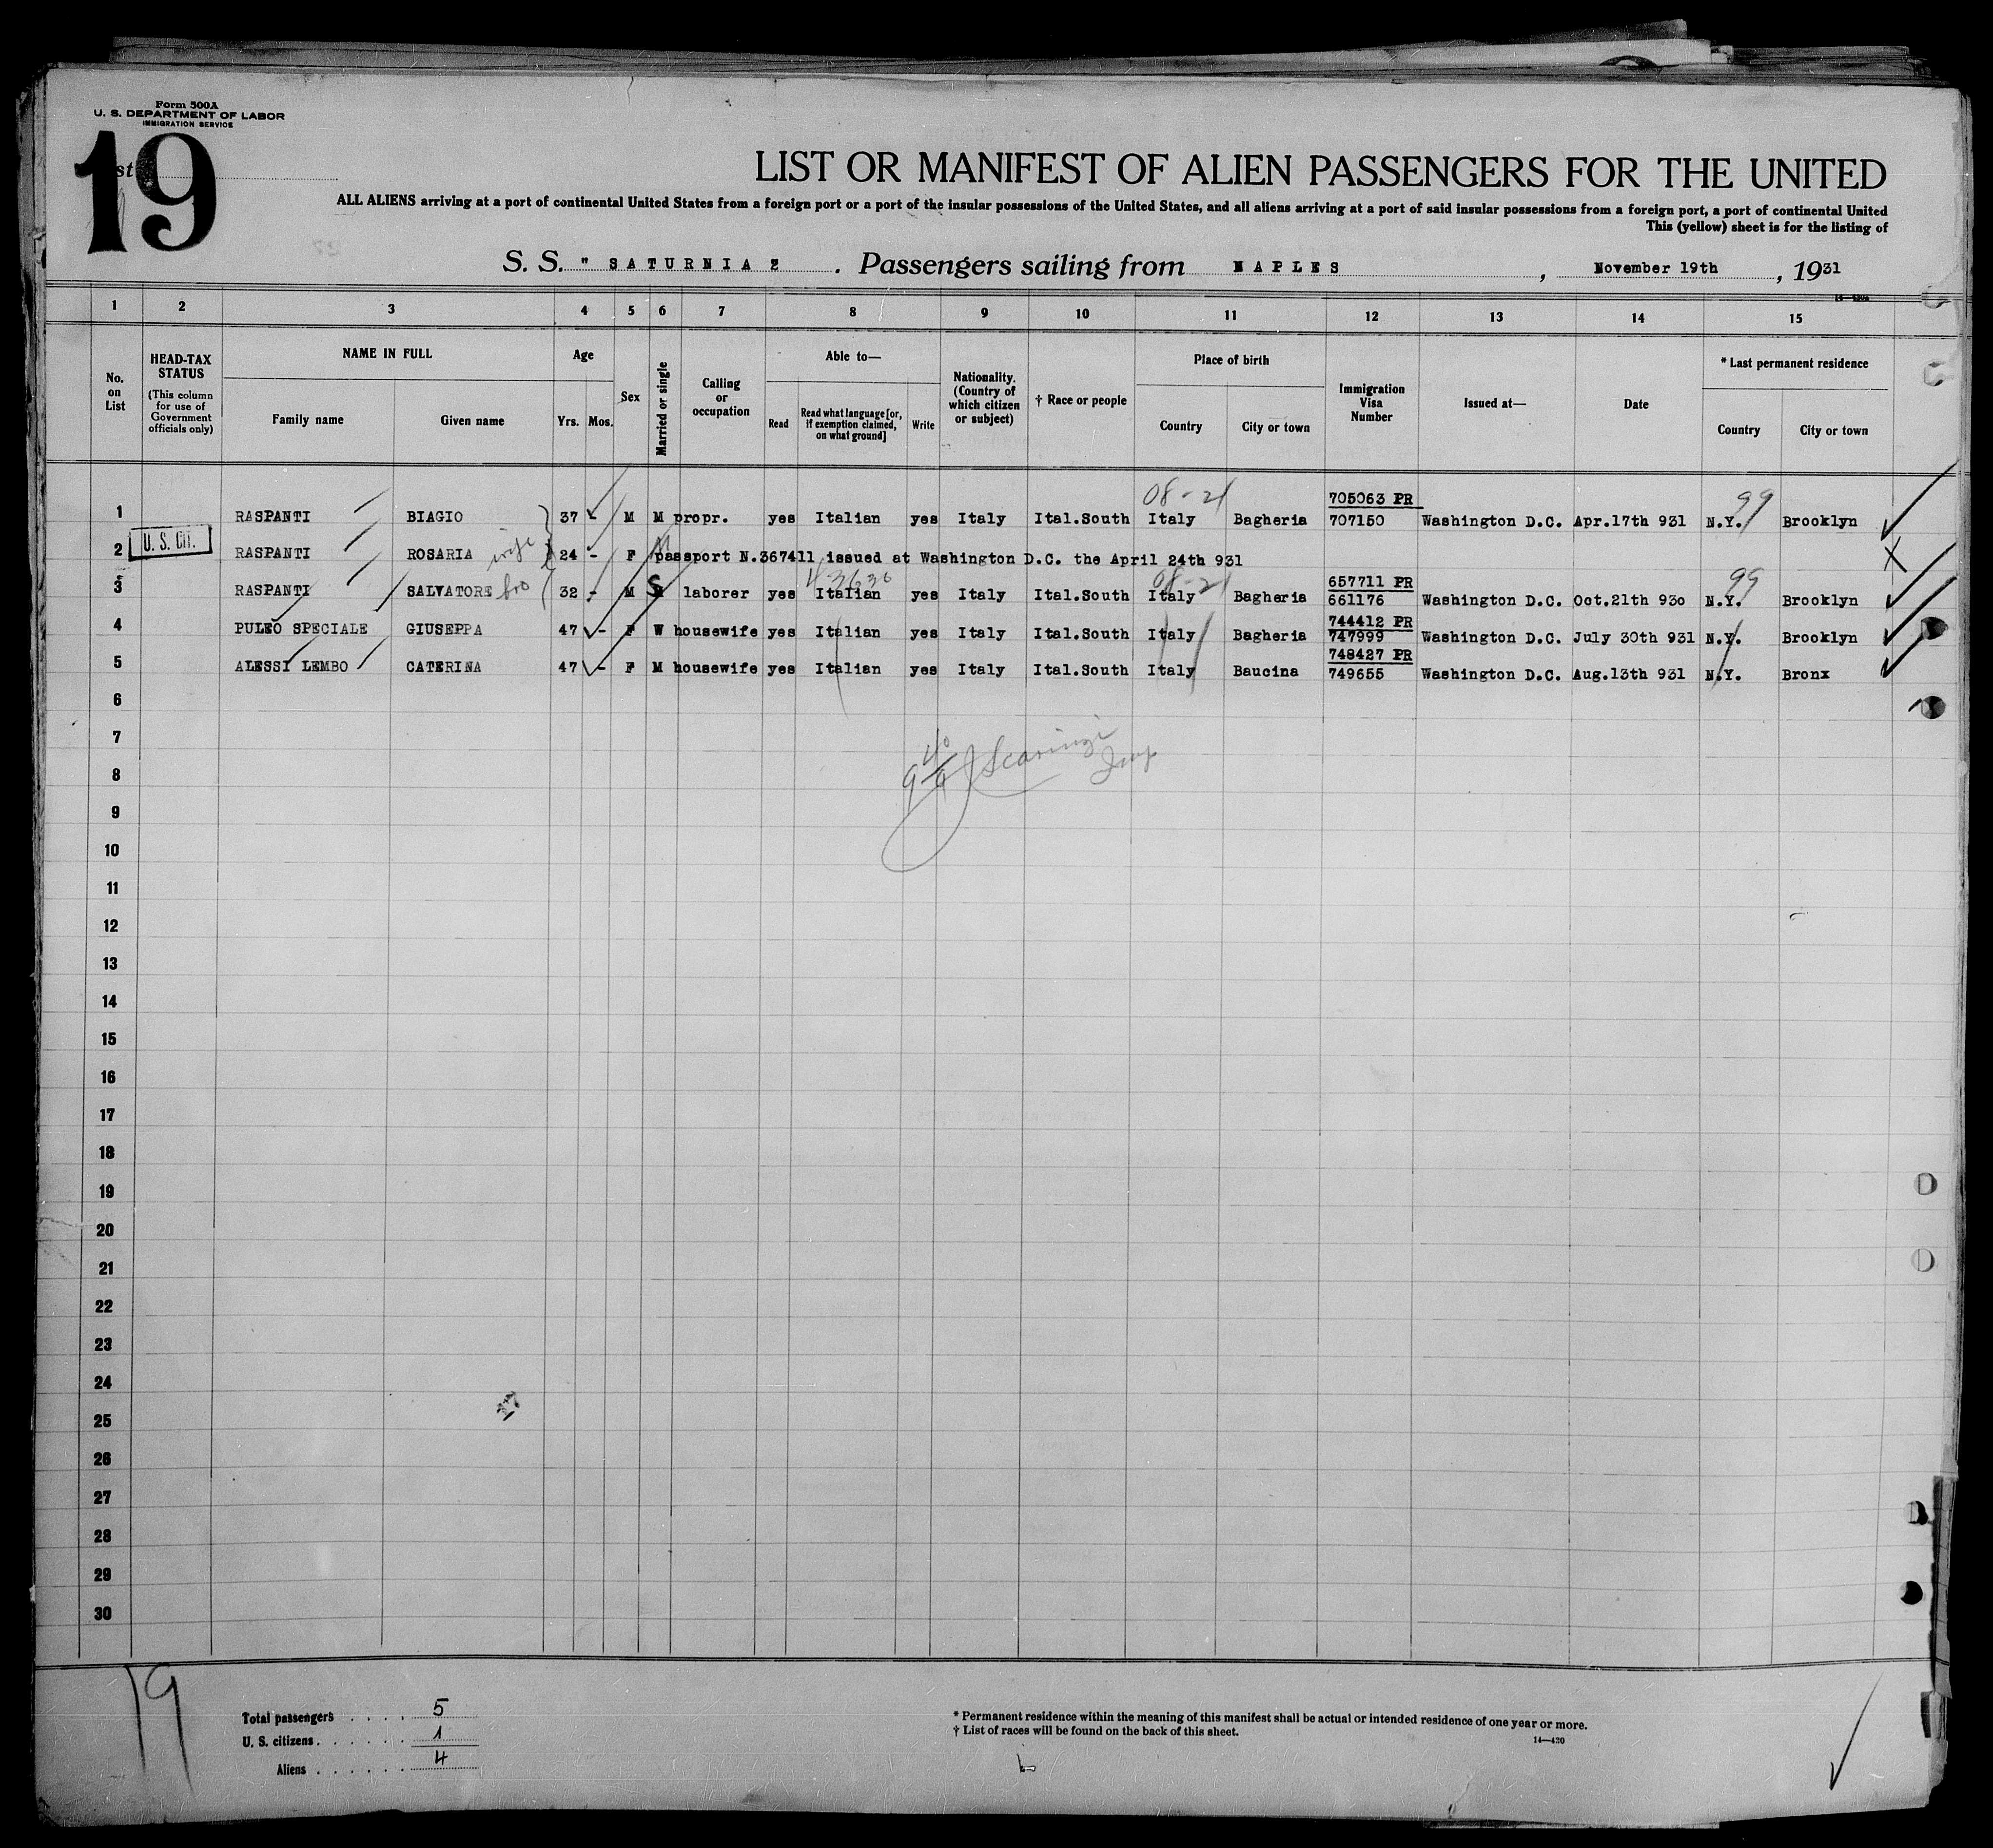 Form 500A
U. S. DEPARTMENT OF LABOR
IMMIGRATION SERVICE
19
LIST OR MANIFEST OF ALIEN PASSENGERS FOR THE UNITED
ALL ALIENS arriving at a port of continental United States from a foreign port or a port of the insular possessions of the United States, and all aliens arriving at a port of said insular possessions from a foreign port, a port of continental United
This (yellow) sheet is for the listing of
S. S. " SATURNIA " . Passengers sailing from NAPLES , November 19th , 1931
1 2 3 4 5 6 7 8 9 10 11 12 13 14 15
No. on List
HEAD-TAX STATUS
(This column for use of Government officials only)
NAME IN FULL
Family name Given name
Age
Yrs. Mos.
Sex
Married or single
Calling or occupation
Able to—
Read
Read what language [or, if exemption claimed, on what ground]
Write
Nationality. (Country of which citizen or subject)
† Race or people
Place of birth
Country City or town
Immigration Visa Number
Issued at—
Date
* Last permanent residence
Country City or town
08-21 705063 PR 99
1 RASPANTI BIAGIO 37 - M M propr. yes Italian yes Italy Ital.South Italy Bagheria 707150 Washington D.C. Apr.17th 931 N.Y. Brooklyn
2 U. S. CIT. RASPANTI ROSARIA wife 24 - F M passport N.367411 issued at Washington D.C. the April 24th 931
08-21 657711 PR 99
3 RASPANTI SALVATORE bro 32 - M S laborer yes Italian yes Italy Ital.South Italy Bagheria 661176 Washington D.C. Oct.21th 930 N.Y. Brooklyn
744412 PR
4 PULEO SPECIALE GIUSEPPA 47 - F W housewife yes Italian yes Italy Ital.South Italy Bagheria 747999 Washington D.C. July 30th 931 N.Y. Brooklyn
748427 PR
5 ALESSI LEMBO CATERINA 47 - F M housewife yes Italian yes Italy Ital.South Italy Baucina 749655 Washington D.C. Aug.13th 931 N.Y. Bronx
6
7
8
9
10
11
12
13
14
15
16
17
18
19
20
21
22
23
24
25
26
27
28
29
30
19
Total passengers . . . . 5
U. S. citizens . . . . . . 1
Aliens . . . . . . 4
* Permanent residence within the meaning of this manifest shall be actual or intended residence of one year or more.
† List of races will be found on the back of this sheet.
14—430